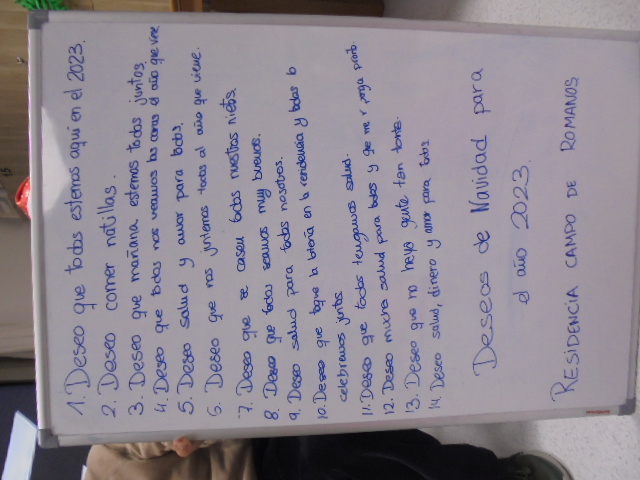 1. Deseo que todos estemos aquí en el 2023.
2. Deseo comer natillas.
3. Deseo que mañana estemos todos juntos
4. Deseo que todos nos veamos las caras el año que viene
5. Deseo salud y amor para todos.
6. Deseo que nos juntemos todos el año que viene.
7. Deseo que se casen todos nuestros nietos
8. Deseo que todos seamos muy buenos.
9. Deseo salud para todos nosotros.
10. Deseo que toque la lotería en la residencia y todos lo
celebremos juntos
11. Deseo que todos tengamos salud.
12. Deseo mucha salud para todos y que me ponga pronto.
13. Deseo que no haya gente tan tonta.
14 Deseo salud, dinero y amor para todos
Deseos de Navidad para
el año 2023.
RESIDENCIA CAMPO DE ROMANOS